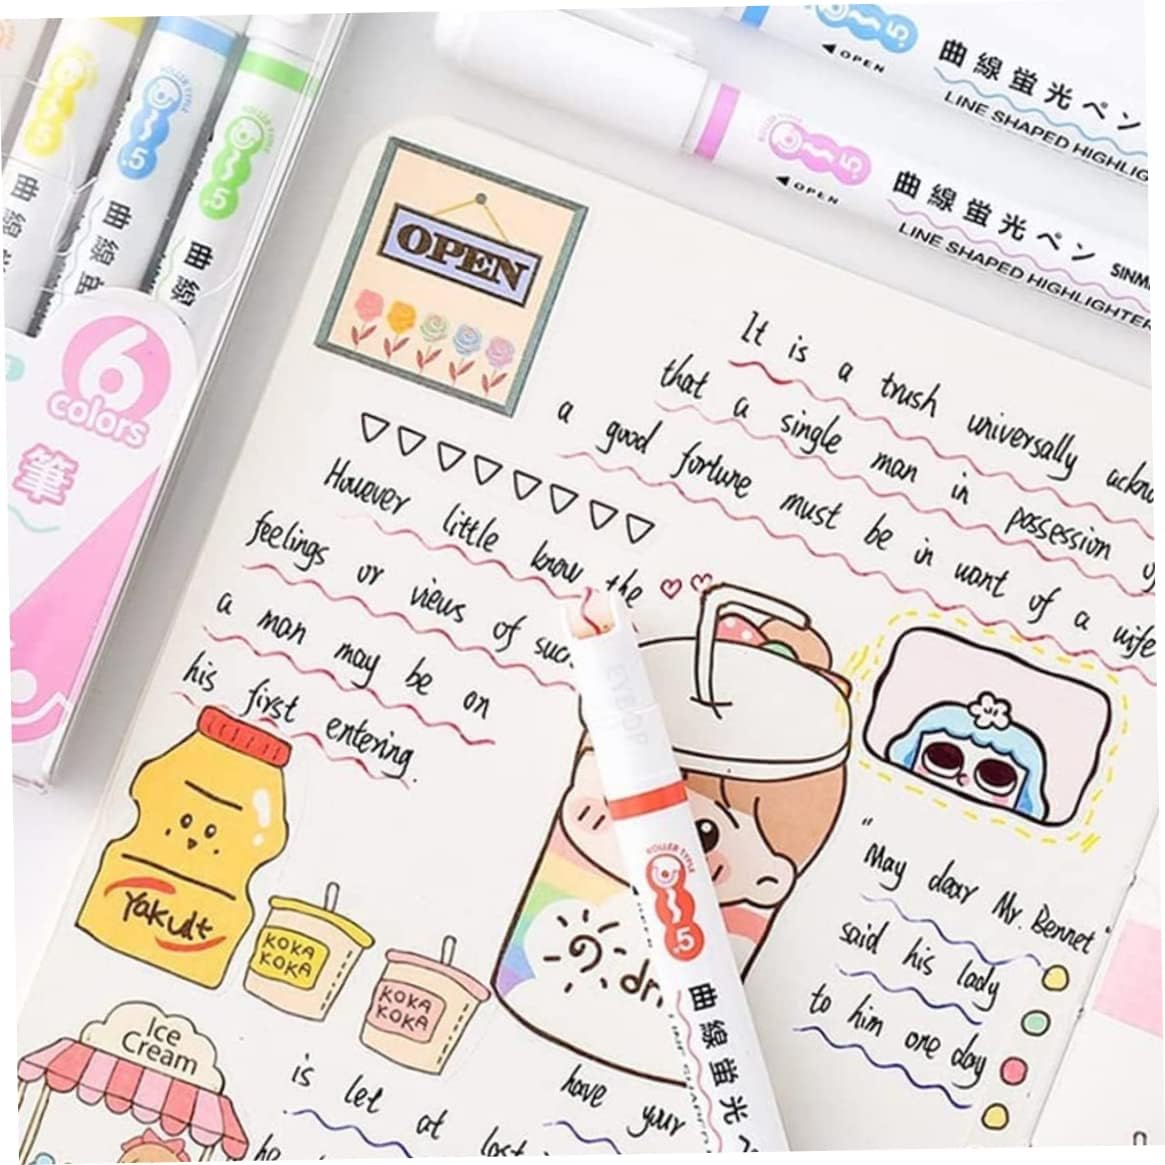 曲線蛍光ペン
LINE SHAPED
OPEN
.5
曲線蛍光ペン
LINE SHAPED HIGHLIGHTER
OPEN
.5
ROLLER TYPLE
.5
.5
ROLLER TYPLE
.5
曲線
曲線
曲線
6
colors
筆
OPEN
It is a trush universally
that a single man in possession
a good fortune must be in want of a wife
However little know the
feelings or views of
a man may be on
his first entering.
Yakult
KOKA
KOKA
KOKA
KOKA
Ice
Cream
ROLLER TYPLE
.5
曲線蛍光ペ
"May dear Mr. Bennet"
said his lady
to him one day
is let at
have your